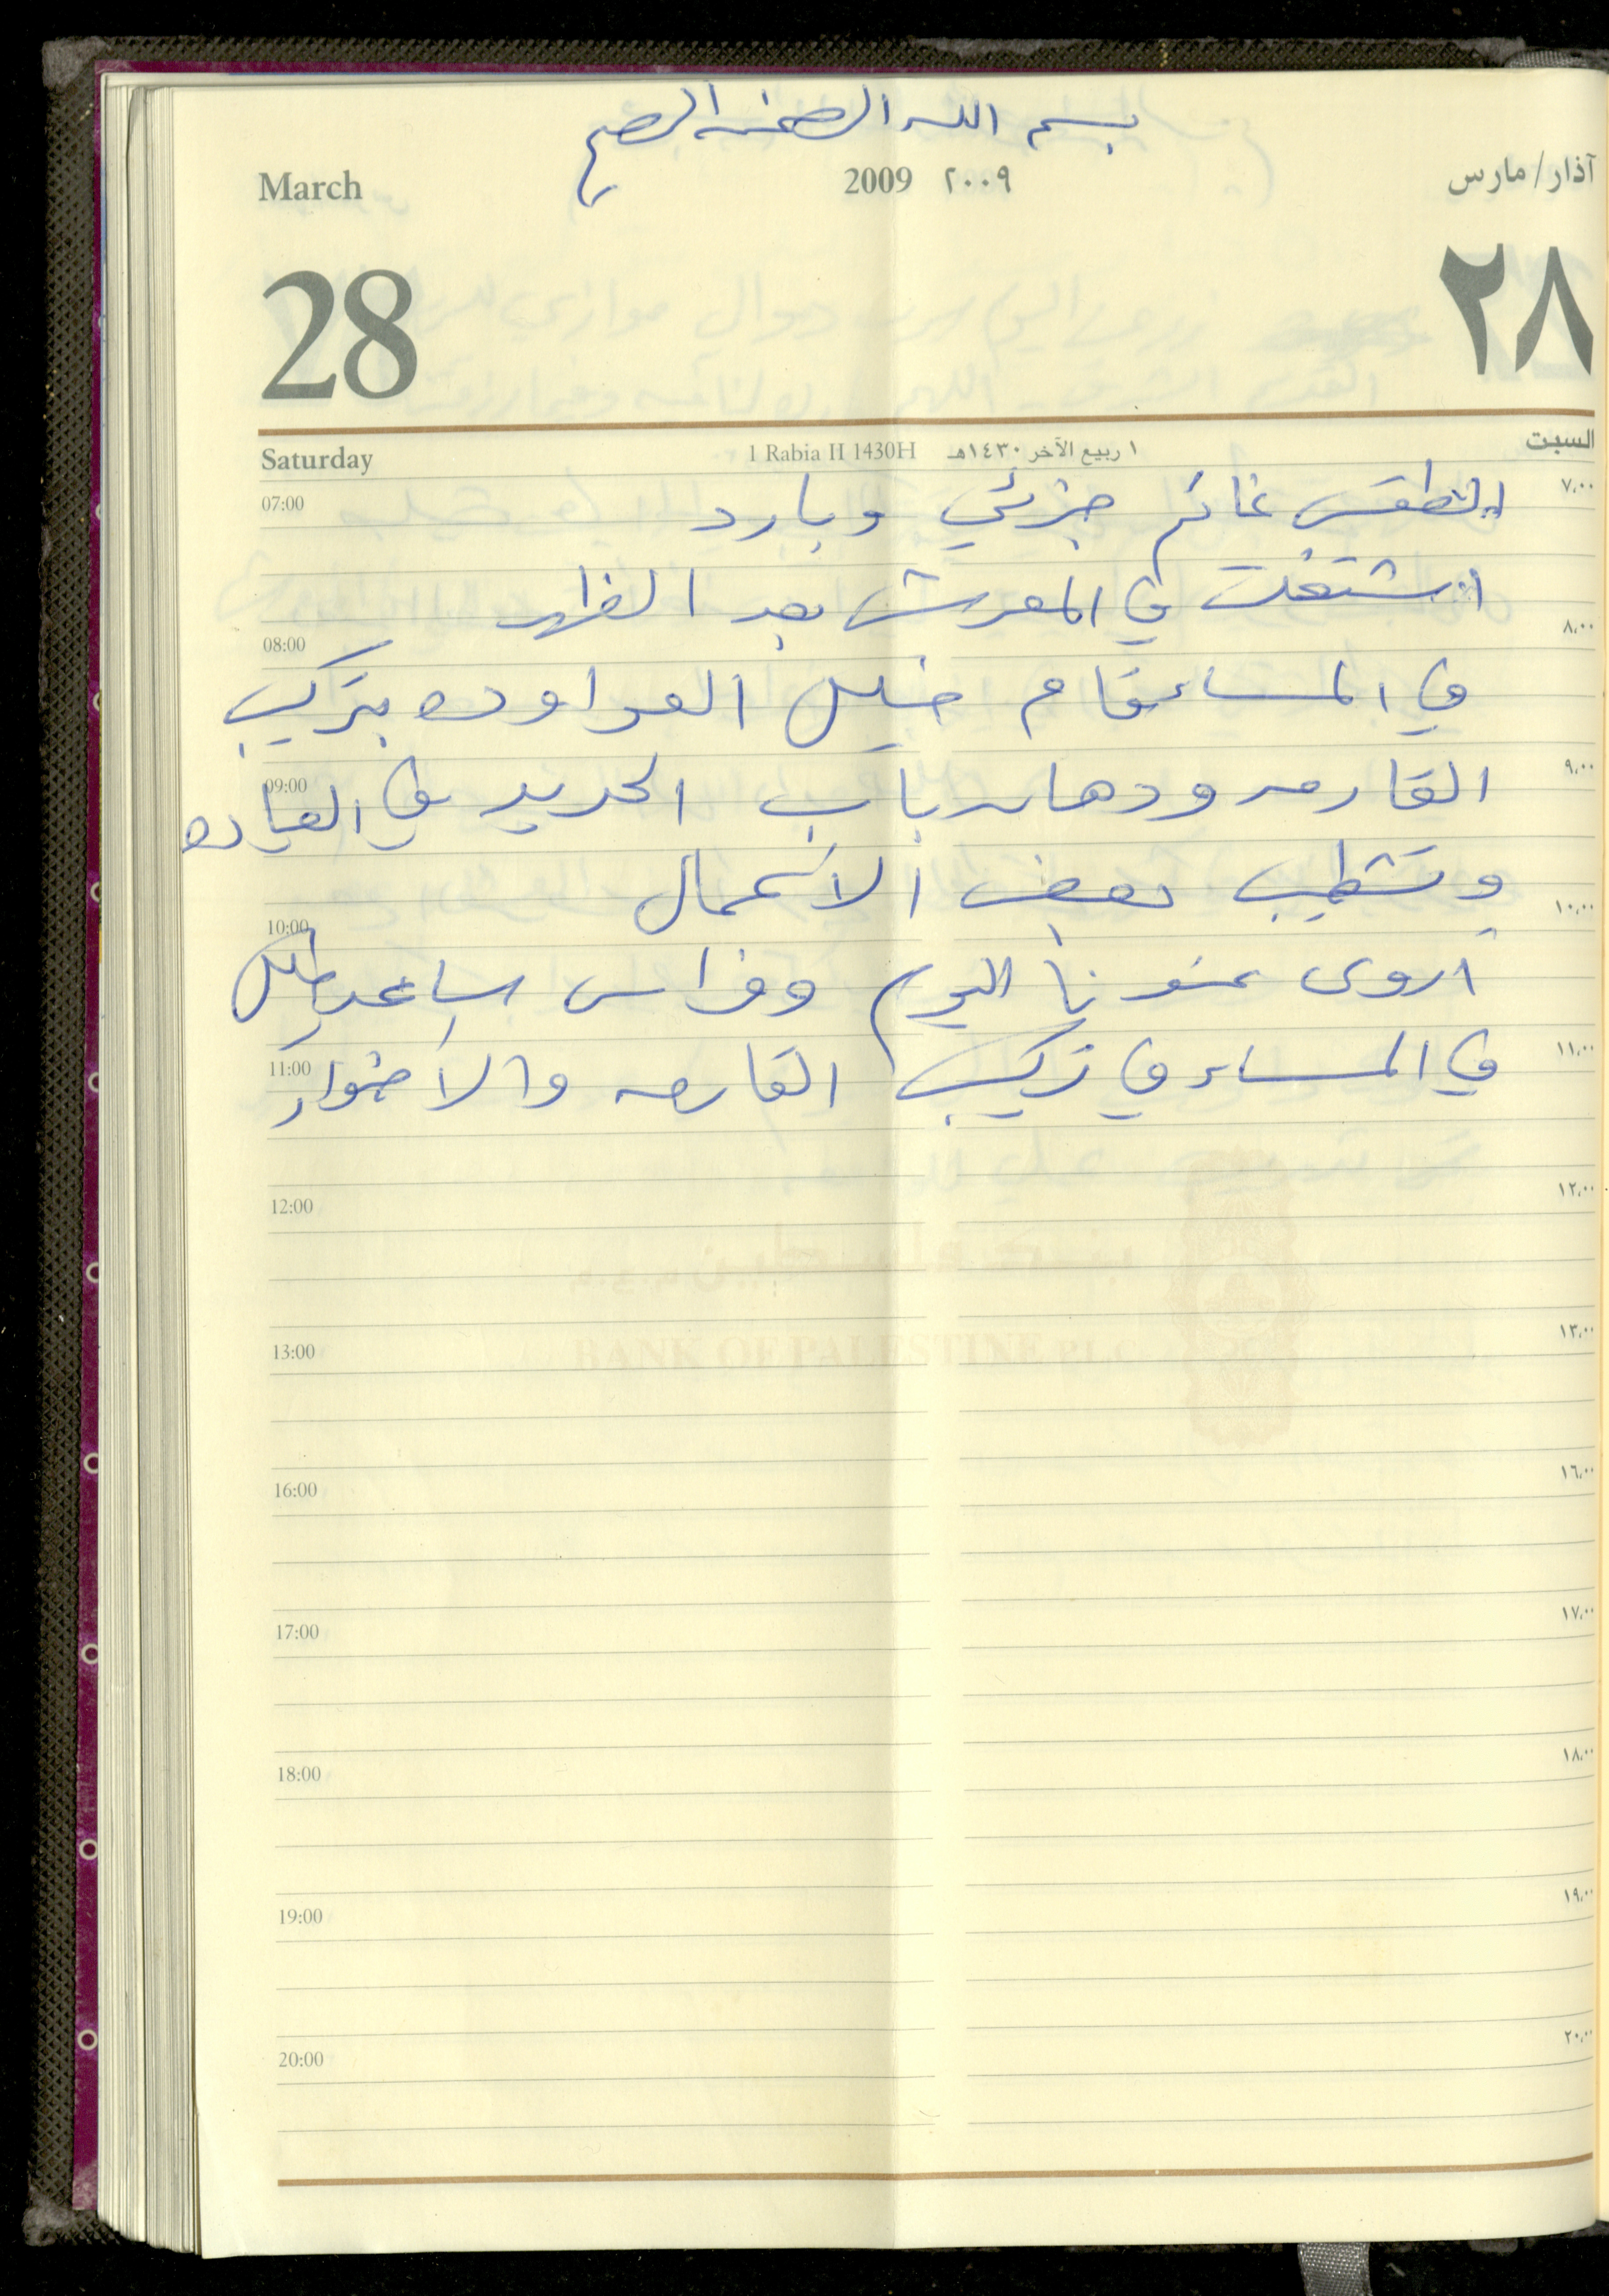 بسم الله الرحمن الرحيم
March 2009 ٢٠٠٩ آذار/مارس
28 ٢٨
Saturday 1 Rabia II 1430H ١ ربيع الآخر ١٤٣٠هـ السبت
07:00 الطقس غائم جزئي وبارد ٧،٠٠
اشتغلت في المعرش بعد الظهر
08:00 ٨،٠٠
في المساء قام خليل العواوده بتركيب
09:00 ٩،٠٠
القارمه ودهان باب الحديد في العياده
وتشطيب بعض الاعمال
10:00 ١٠،٠٠
اروى عندنا اليوم وفراس ساعد خليل
11:00 في المساء في تركيب القارمه والاضواء ١١،٠٠
12:00 ١٢،٠٠
BANK OF PALESTINE PLC
13:00 ١٣،٠٠
16:00 ١٦،٠٠
17:00 ١٧،٠٠
18:00 ١٨،٠٠
19:00 ١٩،٠٠
20:00 ٢٠،٠٠